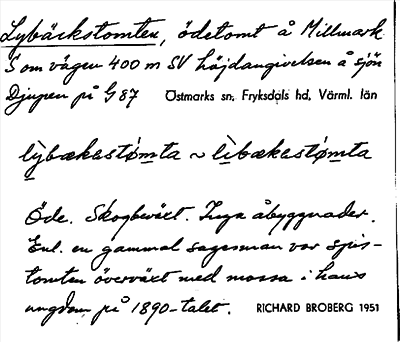 Lybäckstomten, ödetomt å Millmark
S om vägen 400 m SV höjdangivelsen å sjön
Djupen på G 87 Östmarks sn, Fryksdals hd, Värml. län
lỳbækastǿmta ~ lìbækastǿmta
Öde. Skogbeväxt. Inga åbyggnader.
Enl. en gammal sagesman var spis-
tomten överväxt med mossa i hans
ungdom på 1890-talet. RICHARD BROBERG 1951